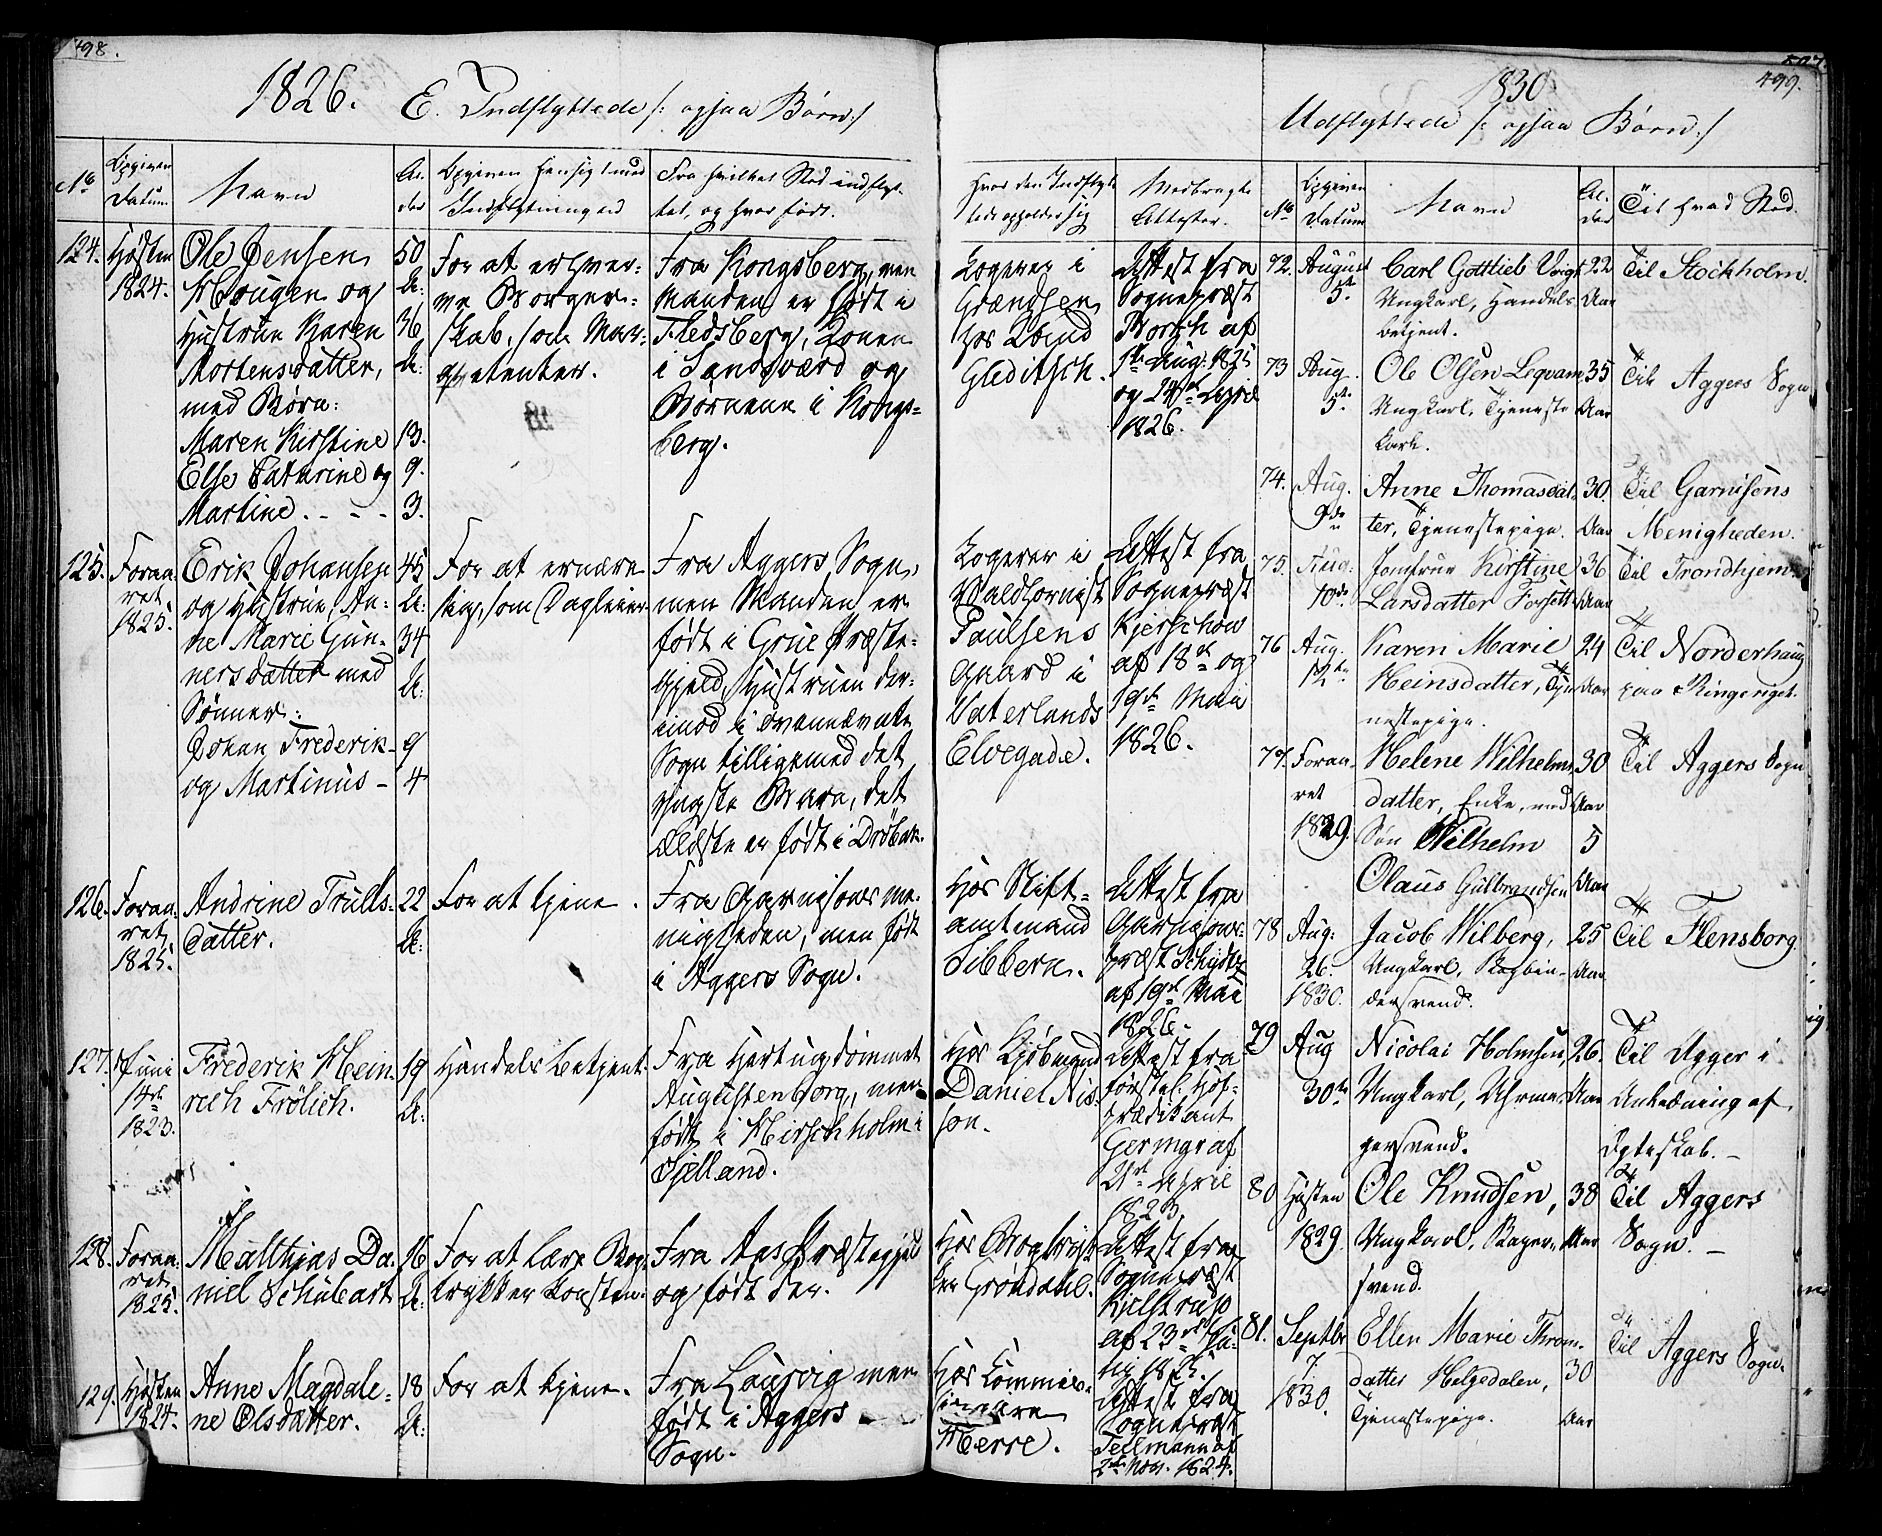 498.
1826. E. Indflyttede /: ogsaa Børn :/
No
Opgiven
Datum
Navn
Al-
der
Opgiven Hensigt med
Indflytningen
Fra hvilket Sted indflyt-
tet, og hvor født.
Hvor den Indflyt-
tede opholder sig
Medbragte
Attester.
124.
Høsten
1824.
Ole Jensen
Hougen og
Hustrue Karen
Mortensdatter,
med Børn:
Maren Kirstine
Else Cathrine og
Martine . - - -
50
A:
36
A:
13.
9.
3.
For at erhver-
ve Borger-
skab, som Mar-
quetenter.
Fra Kongsberg, men
Manden er født i
Flesberg, Konen
i Sandsværd og
Børnene i Kongs-
berg.
Logerer i
Grændsen
hos Lænd
Gleditsch.
Attest fra
Sognepræst
Borch af
1ste Aug. 1825
og 24de April
1826.
125.
Foraa-
ret
1825.
Erik Johansen
og Hustrue An-
ne Marie Gun-
nersdatter med
Sønner:
Johan Frederik
og Martinus -
45
A:
34
A:
9
4
For at ernære
sig, som Dagleier
Fra Aggers Sogn,
men Manden er
født i Grue Præste-
gjeld, Hustruen der-
imod i ovennævnte
Sogn tilligemed det
yngste Barn, det
ældste er født i Drøbak.
Logerer i
Valdhornist
Paulsens
Gaard i
Vaterlands
Elvegade.
Attest fra
Sognepræst
Kjerschow
af 18de og
19de Maii
1826.
126.
Foraa-
ret
1825.
Andrine Truls-
datter.
22
A:
For at tjene.
Fra Garnisons me-
nigheden, men født
i Aggers Sogn.
Hos Stift-
amtmand
Sibbern.
Attest fra
Garnisons-
præst Schydtz
af 19de Maii
1826.
127.
Juni
14de
1823.
Frederik Hein-
rich Frölich.
19
A:
Handels Betjent.
Fra Hertugdømmet
Augustenborg, men
født i Hirschholm i
Sjelland.
Hos Kjøbmand
Daniel Nis-
son.
Attest fra
forstel: Hof-
prædikant
Germgraf
21de April
1823.
128.
Foraa-
ret
1825.
Matthias Da-
niel Schubart
16
A:
For at lære Bog-
trykkerkonsten.
Fra Aas Præstegjeld
og født der.
Hos Bogtryk-
ker Grøndahl.
Attest fra
Sognepræst
Kjelstrup
af 23de Ju-
lij 1825.
129.
Høsten
1824.
Anne Magdale-
ne Olsdatter.
18
A:
For at tjene.
Fra Laurvig men
født i Aggers
Sogn.
Hos Commer-
Herre.
Attest fra
Sognepræst
Tellmann af
2de Nov. 1824.
499.
1830
Udflyttede /: ogsaa Børn :/
No
Opgiven
Datum
Navn
Al-
der
Til hvad Sted.
72.
August
5te
Carl Gottlieb Voigt
Ungkarl, Handels
betjent.
22
Aar
Til Stockholm.
73
Aug.
5te
Ole Olsen Leqvam
Ungkarl, Tjeneste
karl.
35
Aar
Til Aggers Sogn
74.
Aug.
9de
Anne Thomasdat-
ter, Tjenestepige.
30.
Aar
Til Garnisons
Menigheden.
75.
Aug.
10de
Jomfrue Kirstine
Larsdatter Forsett
36
Aar
Til Trondhjem
76
Aug.
12te
Karen Marie
Heinsdatter, Tje-
nestepige.
24
Aar
Til Norderhaug
paa Ringeriget.
77.
Foraa-
ret
1829.
Helene Wilhelms-
datter, Enke, med
Søn Wilhelm
Olaus Gulbrandsen
30
Aar
5
Aar
Til Aggers Sogn
78
Aug:
26.
1830.
Jacob Wilberg,
Ungkarl, Bogbin-
dersvend.
25
Aar
Til Flensborg
79
Aug
30te
Nicolai Holmsen,
Ungkarl, Uhrma-
gersvend.
26.
Aar
Til Agger i
Anledning af
Egteskab. -
80
Høsten
1829.
Ole Knudsen,
Ungkarl, Bager-
svend.
38
Aar
Til Aggers
Sogn. -
81.
Septbr
7.
1830.
Ellen Marie Thron-
datter Helgedalen,
Tjenestepige.
30
Aar
Til Aggers Sogn.